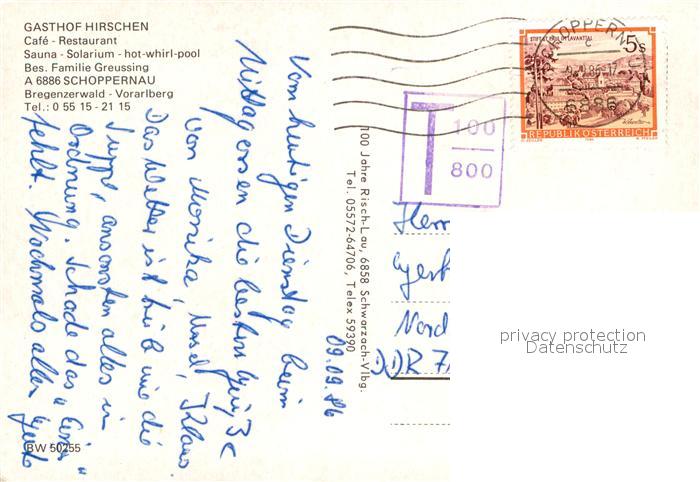 GASTHOF HIRSCHEN
Café - Restaurant
Sauna - Solarium - hot-whirl-pool
Bes. Familie Greussing
A 6886 SCHOPPERNAU
Bregenzerwald - Vorarlberg
Tel.: 0 55 15 - 21 15
BW 50255
09.09.86
Vom heutigen Dienstag beim
Mittagessen die besten Grüße
von Monika, und Klaus.
Das Wetter ist trüb wie die
Suppe, ansonsten alles in
Ordnung. Schade das
fehlt. Nochmals alles Gute
100 Jahre Risch-Lau, 6858 Schwarzach-Vlbg.
Tel. 05572-64706, Telex 59390
T 100
800
STIFT ST. PAUL IM LAVANTTAL
5s
REPUBLIK ÖSTERREICH
SCHOPPERN
Herr
Nord
DDR 7
privacy protection
Datenschutz